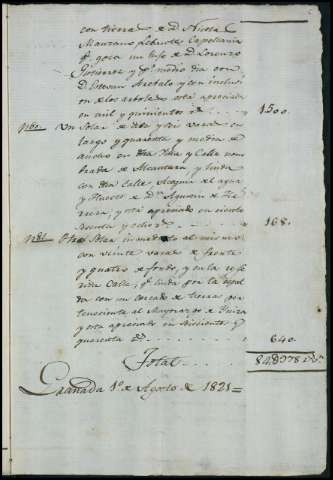 con tierras de Dn. Nicolas
Manzano Lebante Capellania
qe. goza un hijo de Dn. Lorenzo
Gutierrez y pr. medio dia con
Dn. Estevan Arebalo y con inclusion
de los arboles está apreciado
en mil y quinientos rs. 1500.
Un Solar de dies y seis varas de
largo y quarenta y media de
ancho en dha Villa y Calle nom
brada de Alcantara, y linda
con dha Calle, Acequia del agua
y Huerto de Dn. Agustin de
y está apreciado en ciento
sesenta y ocho rs. 168.
Otro Solar inmediato al mismo
con veinte varas de frente
y quatro de fondo, y en la refe
rida Calle, qe. linda por la espal
da con un cercado de tierras per
teneciente al Mayorazgo de
y está apreciado en seiscientos
quarenta rs. 640.
Total
Granada 1º de Agosto de 1821=